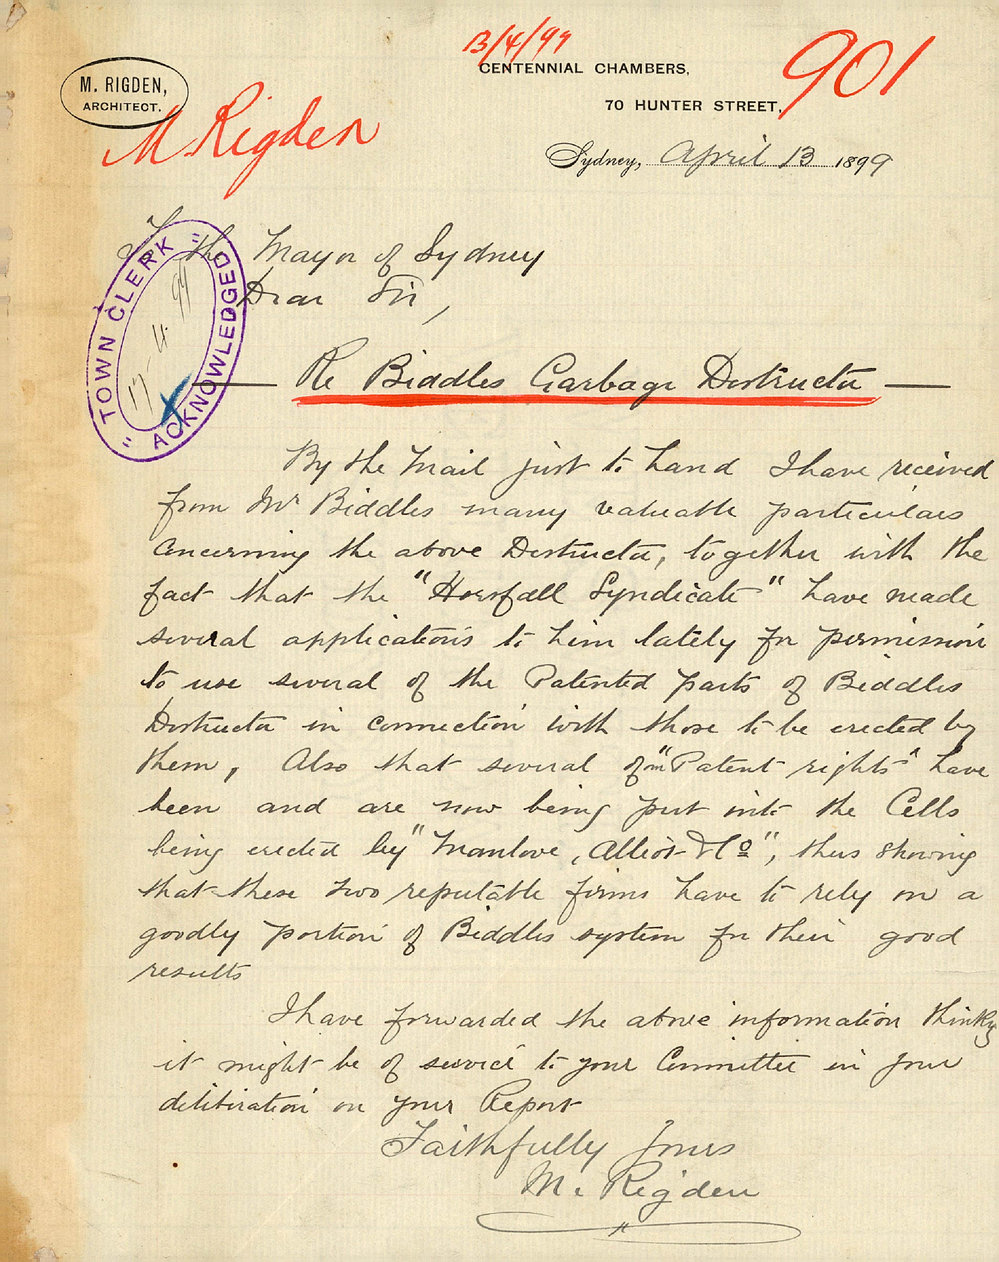 13/4/99
CENTENNIAL CHAMBERS,
901
M. RIGDEN,
ARCHITECT.
70 HUNTER STREET,
M Rigden
Sydney, April 13 1899
To the Mayor of Sydney
Dear Sir,
TOWN CLERK
17-4-99
ACKNOWLEDGED
Re Biddles Garbage Destructor
By the Mail just to hand I have received
from Mr Biddles many valuable particulars
concerning the above Destructor, together with the
fact that the "Horsfall Syndicate" have made
several applications to him lately for permission
to use several of the Patented parts of Biddles
Destructor in connection with those to be erected by
them, Also that several of our "Patent rights" have
been and are now being put into the Cells
being erected by "Manlove, Alliott & Co", thus showing
that these two reputable firms have to rely on a
goodly portion of Biddles system for their good
results
I have forwarded the above information thinking
it might be of service to your Committee in your
deliberation on your Report
Faithfully Yours
M. Rigden